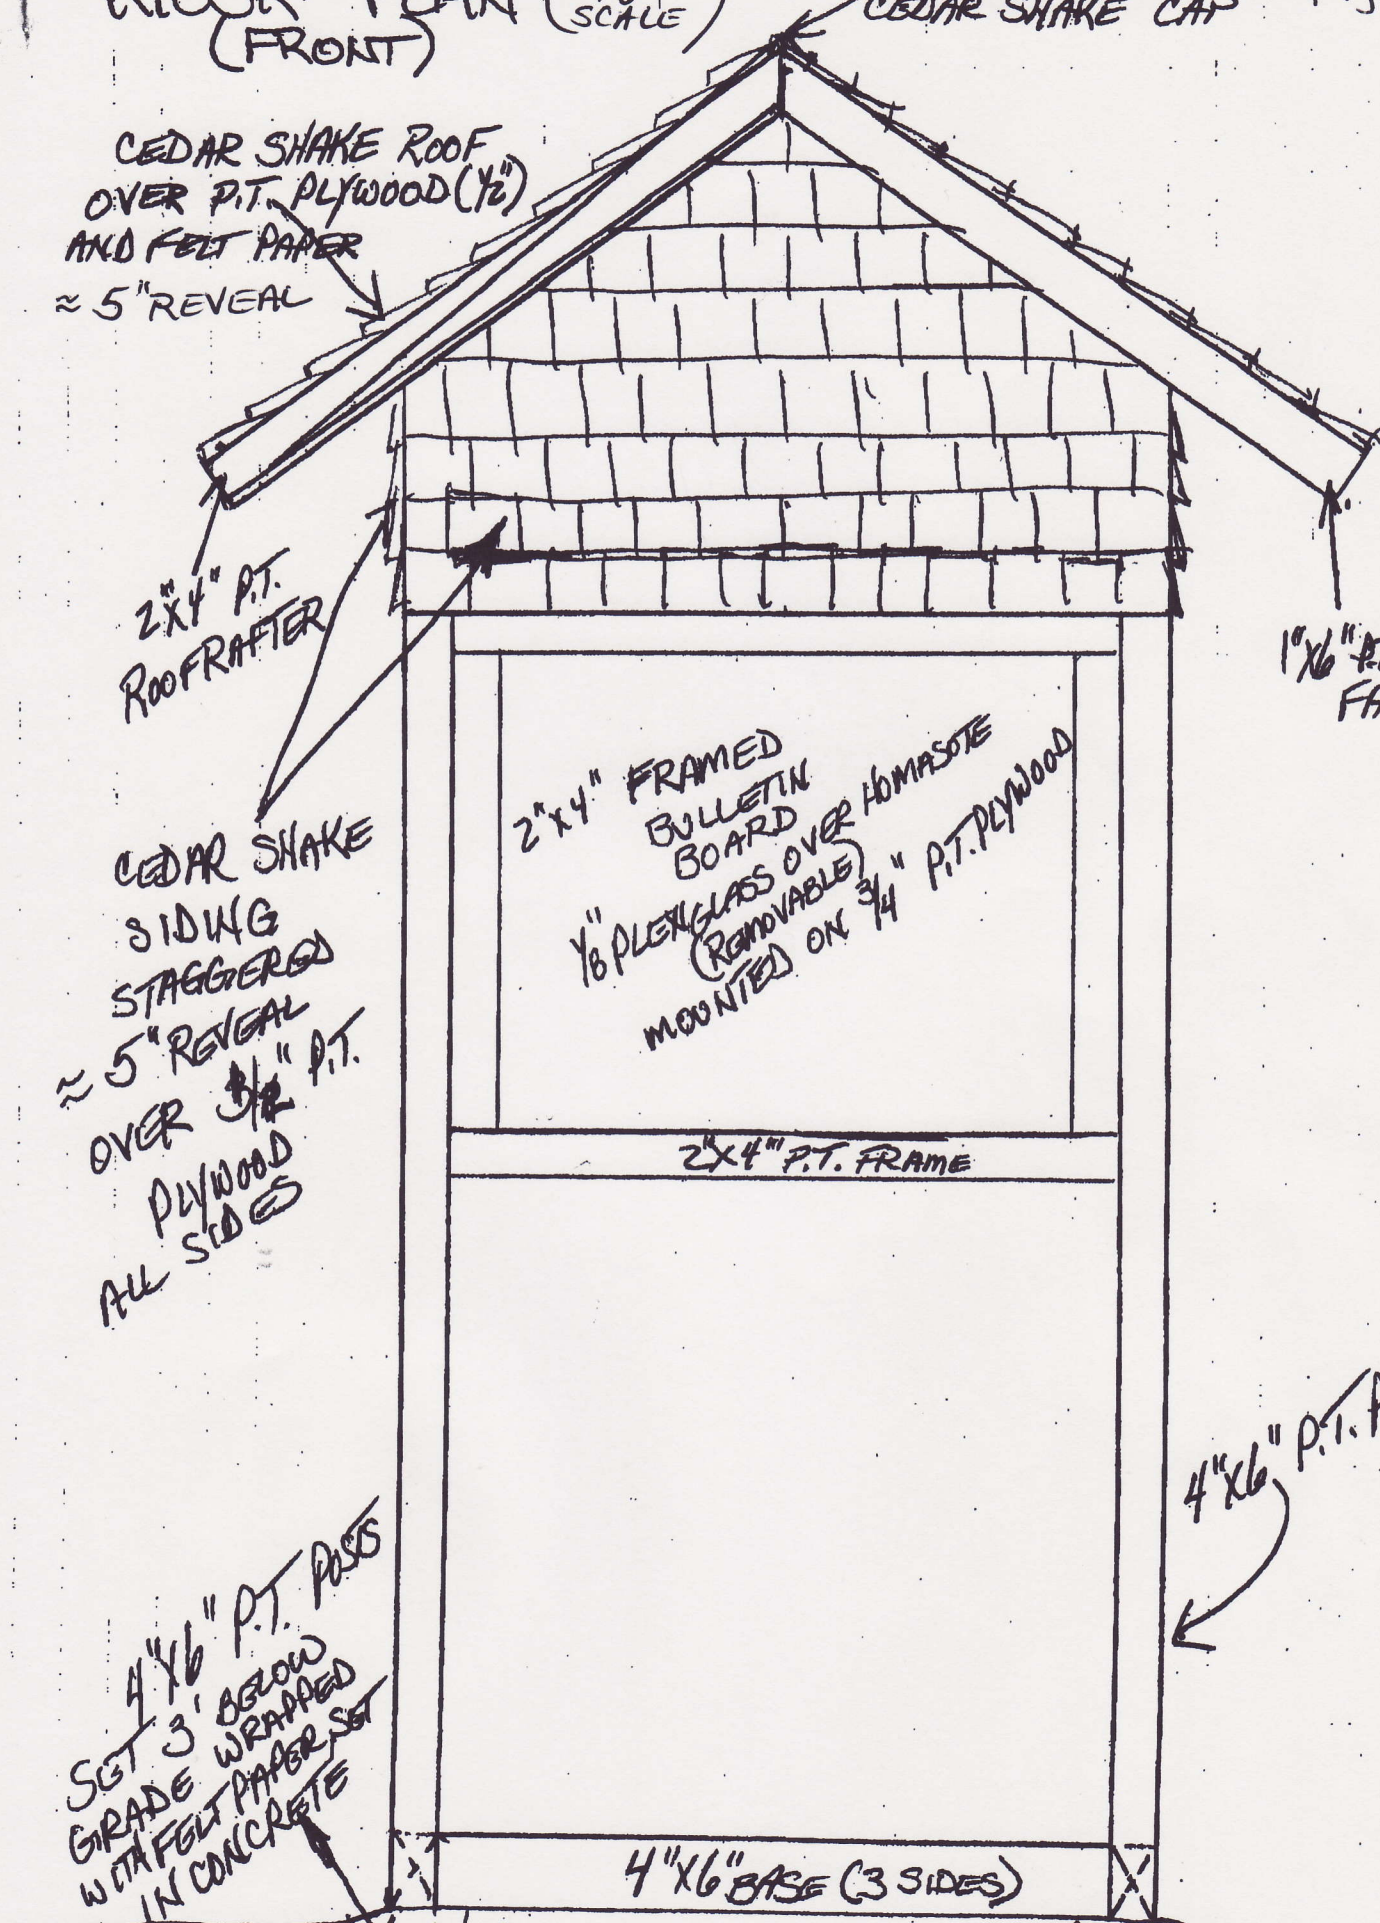 KIOSK PLAN (
SCALE)
(FRONT)
CEDAR SHAKE CAP
CEDAR SHAKE ROOF
OVER P.T. PLYWOOD (1/2")
AND FELT PAPER
≈ 5" REVEAL
2"X4" P.T.
ROOF RAFTER
1"X6" P.T.
CEDAR SHAKE
SIDING
STAGGERED
≈ 5" REVEAL
OVER 1/2" P.T.
PLYWOOD
ALL SIDES
2"X4" FRAMED
BULLETIN
BOARD
1/8" PLEXIGLASS OVER HOMASOTE
(REMOVABLE)
MOUNTED ON 3/4" P.T. PLYWOOD
2"X4" P.T. FRAME
4"X6" P.T.
4"X6" P.T. POSTS
SET 3' BELOW
GRADE WRAPPED
WITH FELT PAPER, SET
IN CONCRETE
4"X6" BASE (3 SIDES)